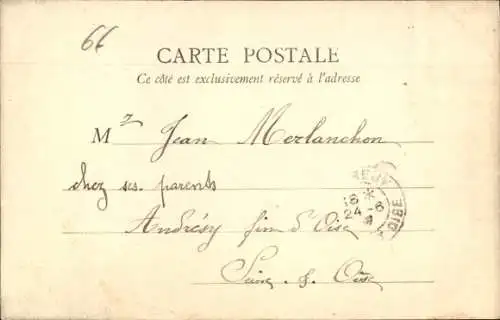 66
CARTE POSTALE
Ce côté est exclusivement réservé à l'adresse
Mr Jean Merlanchon
chez ses parents
Andrésy fin d'Oise
Seine & Oise
18
24 -6
OISE